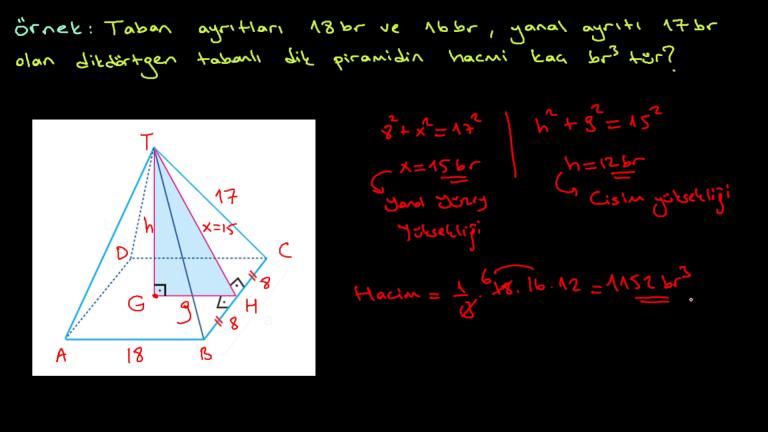 Örnek: Taban ayrıtları 18 br ve 16 br, yanal ayrıtı 17 br
olan dikdörtgen tabanlı dik piramidin hacmi kaç br³ tür?
T
17
h
x=15
D
C
8
G
9
H
8
A
18
B
8² + x² = 17²
x = 15 br
Yanal Yüzey
Yüksekliği
h² + 9² = 15²
h = 12 br
Cisim yüksekliği
Hacim = 1/3 · 6 18 · 16 · 12 = 1152 br³